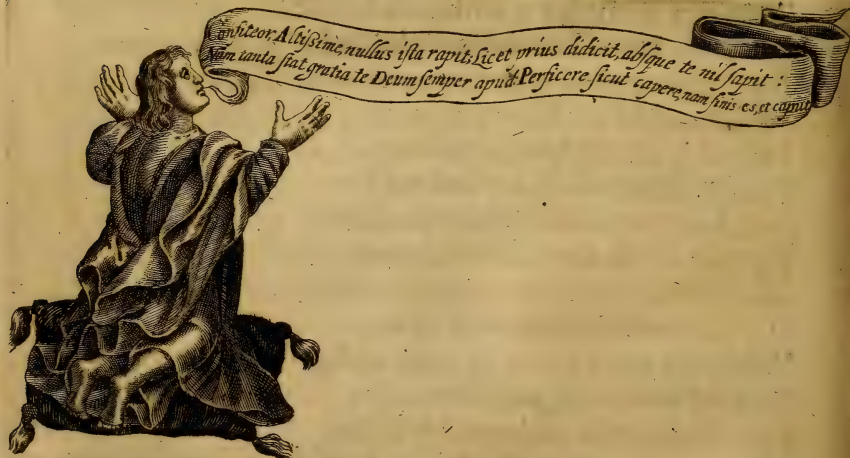 Confiteor, Altißime, nullus ista rapit: Licet prius didicit, absque te nil sapit :
Nam tanta fiat gratia te Deum semper apud: Perficere sicut capere, nam finis es, et caput